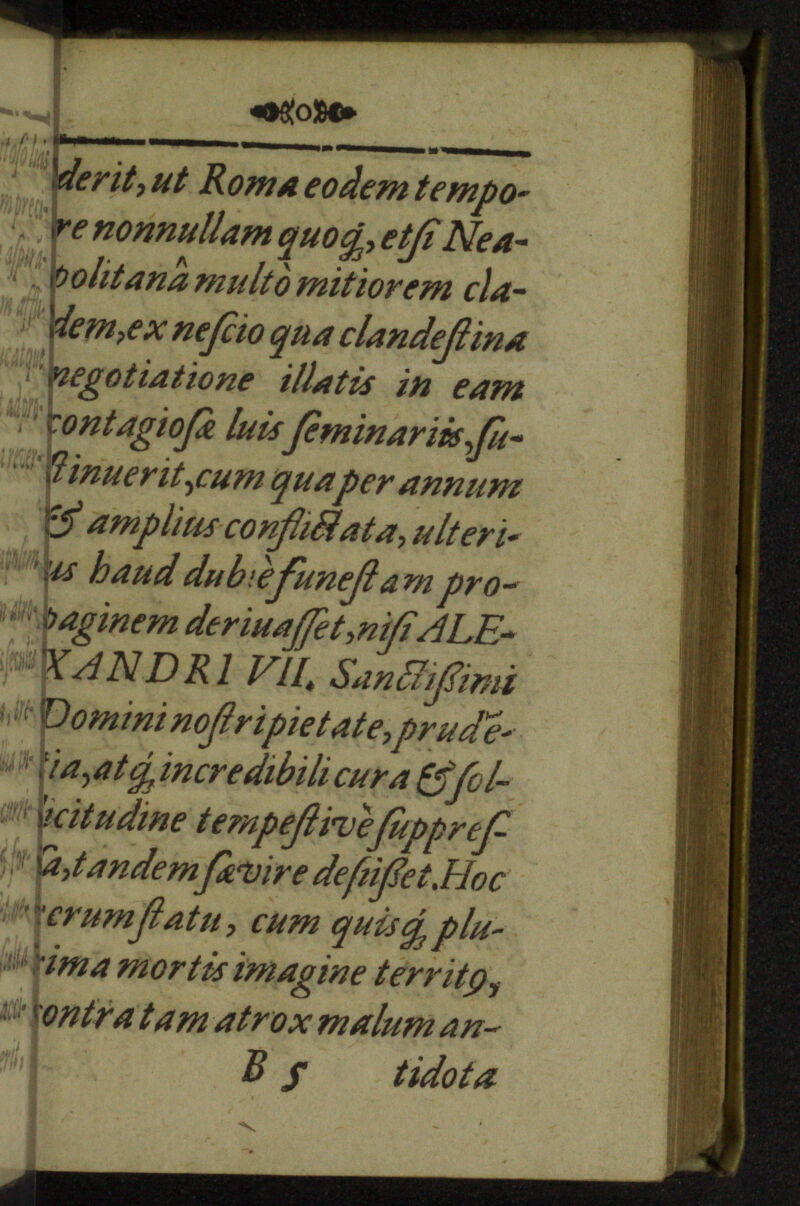 derit, ut Roma eodem tempo-
re nonnullam quoq;, etsi Nea-
politanâ multò mitiorem cla-
dem, ex nescio qua clandestina
negotiatione illatis in eam
contagiosæ luis seminariis, su-
stinuerit, cum qua per annum
& amplius conflictata, ulteri-
us haud dubiè funestam pro-
paginem deriuasset, nisi ALE-
XANDRI VII. Sanctissimi
Domini nostri pietate, prudē-
tia, atq; incredibili cura & sol-
icitudine tempestivè suppres-
sa, tandem sævire desiisset. Hoc
rerum statu, cum quisq; plu-
rima mortis imagine territꝰ,
contra tam atrox malum an-
B 5 tidota